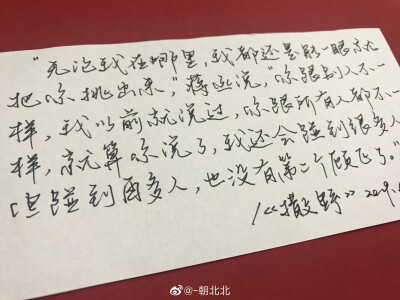 "无论我在哪里,我都还是能一眼就
把你挑出来,"蒋丞说,"你跟别人不一
样,我以前就说过,你跟所有人都不一
样,就算你说了,我还会碰到很多人
但碰到再多人,也没有第二个顾飞了。"
/《撒野》2019.
@-朝北北